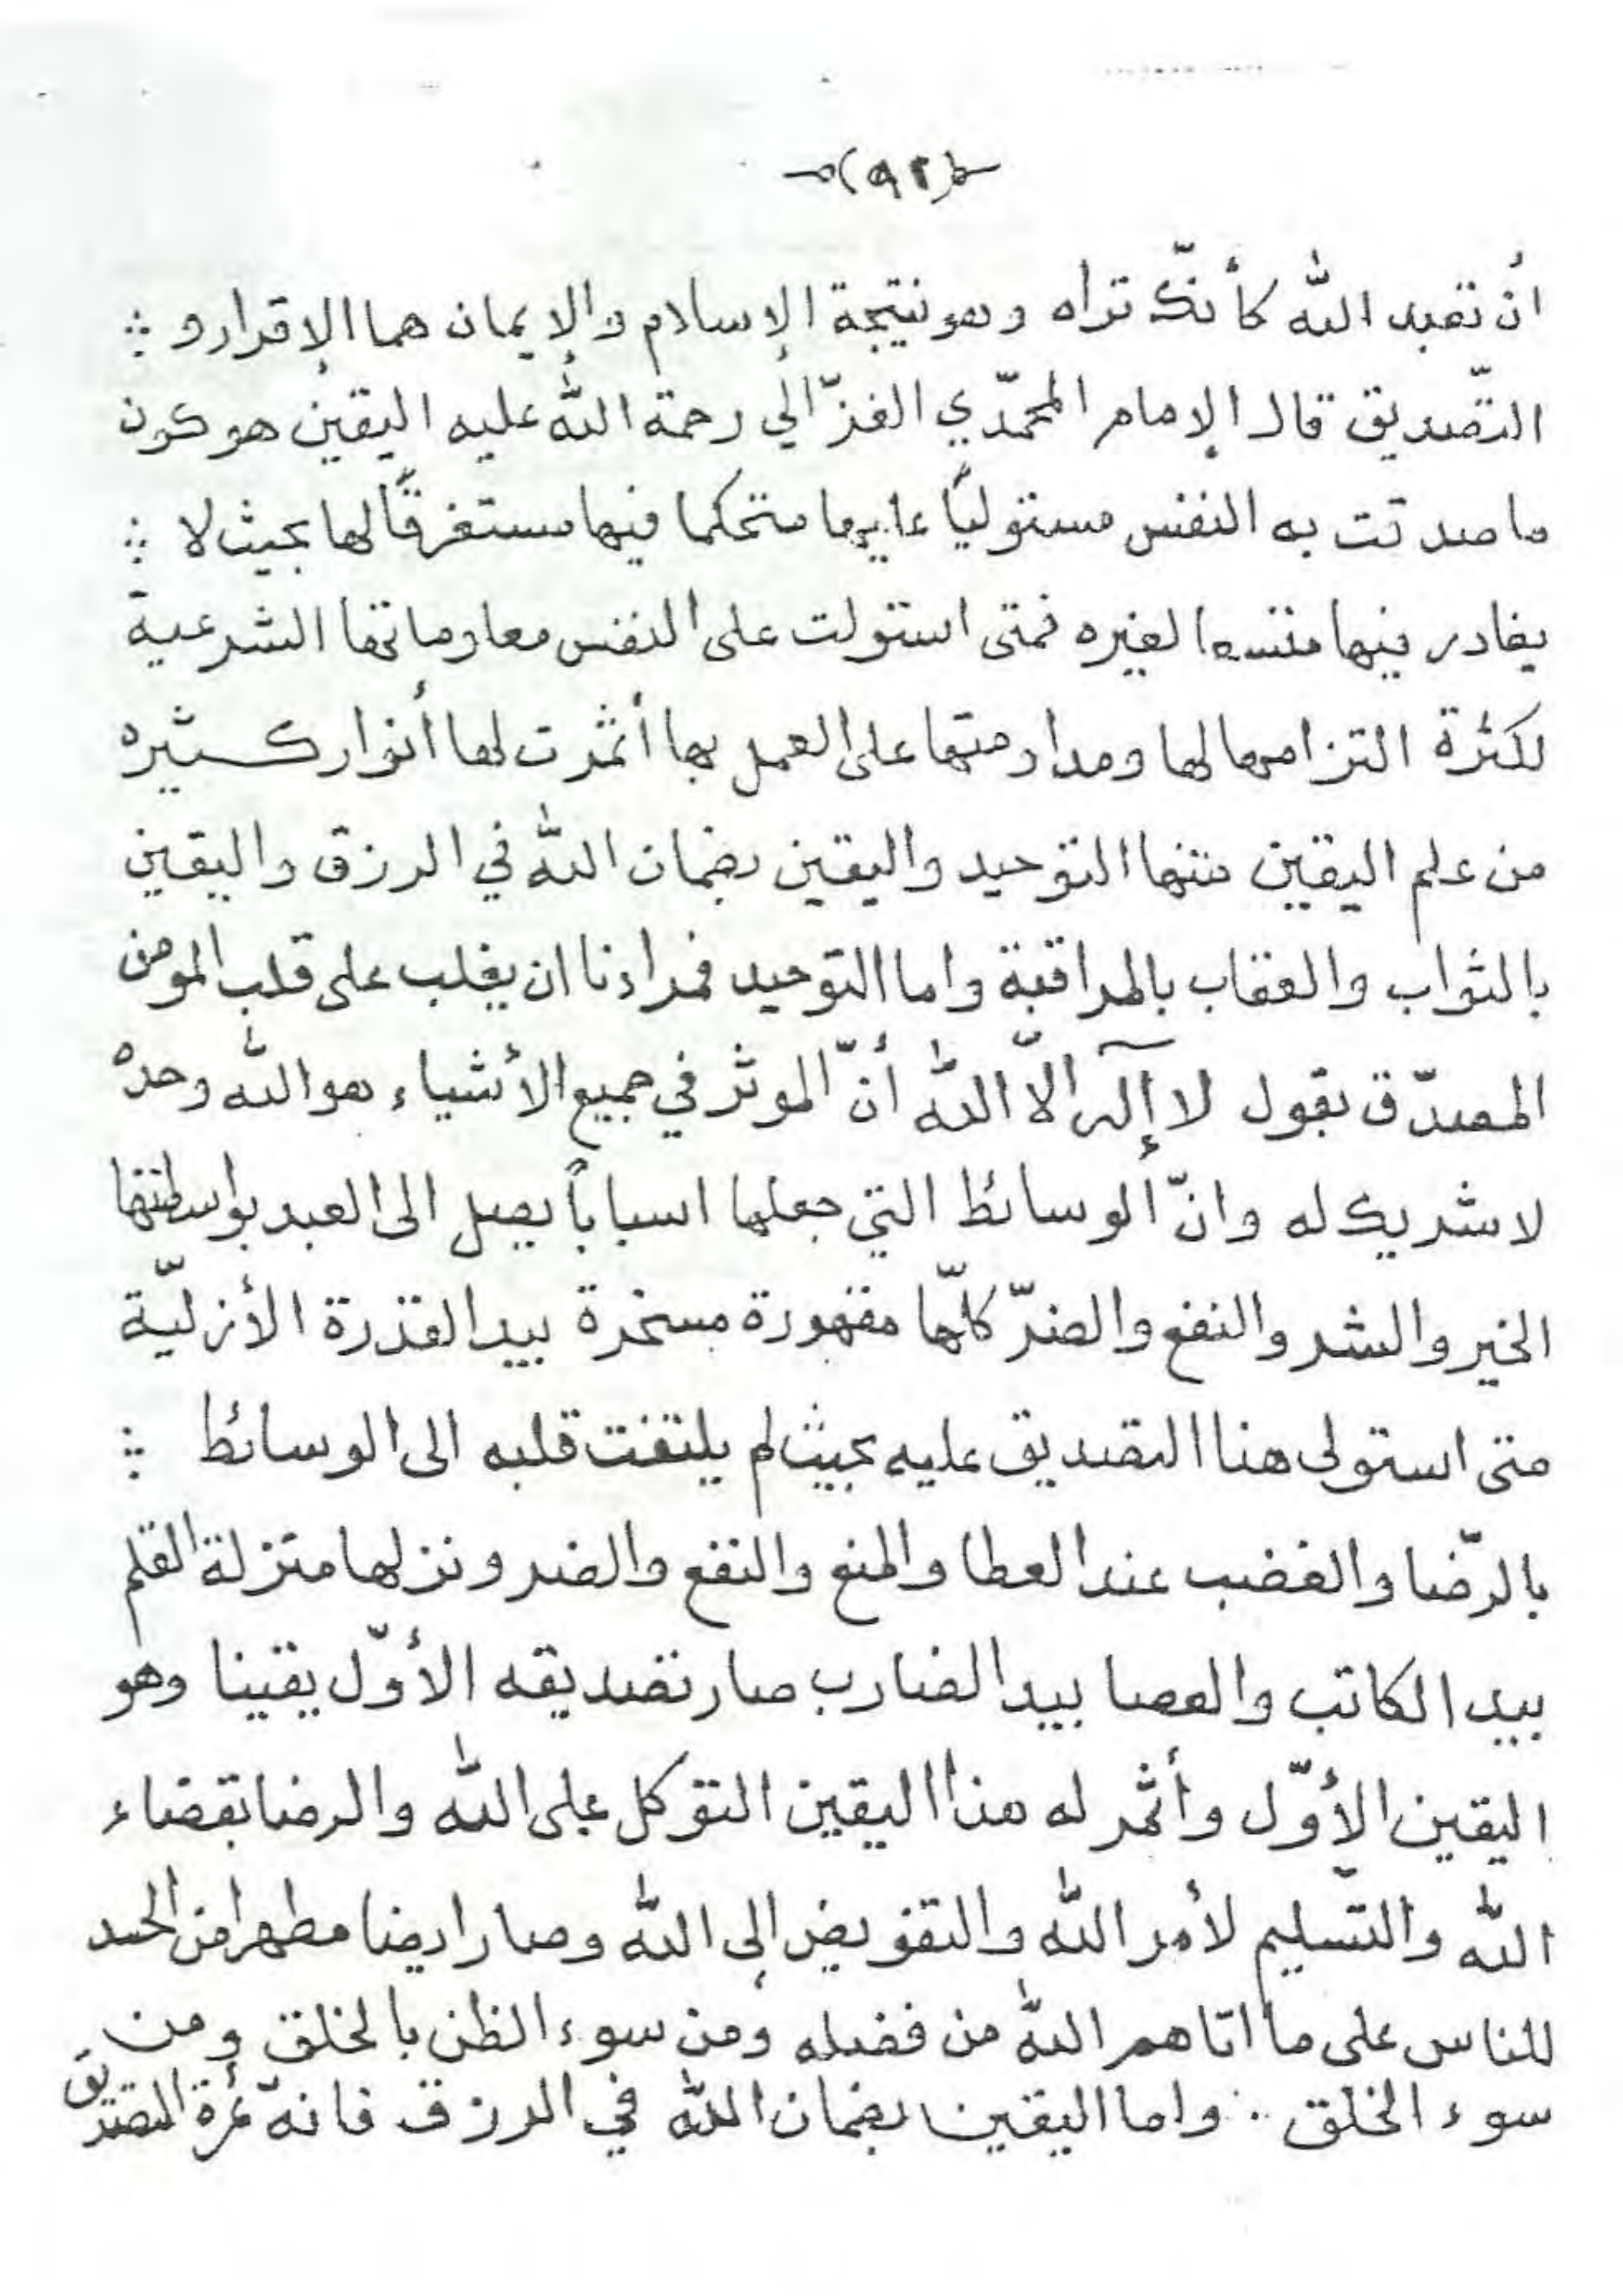 (٩٢)
أن تعبد الله كأنّك تراه وهو نتيجة الإسلام والإيمان هما الإقرار و
التّصديق قال الإمام المحمّدي الغزّالي رحمة الله عليه اليقين هو كون
ما صدقت به النفس مستوليًا عليها متحكما فيها مستغرقًا لها بحيث لا
يغادر فيها متسعا لغيره فمتى استولت على النفس معلوماتها الشرعية
لكثرة التزامها لها ومداومتها على العمل بها أثمرت لها أنوار كثيره
من علم اليقين منها التوحيد واليقين بضمان الله في الرزق واليقين
بالثواب والعقاب بالمراقبة واما التوحيد فمرادنا ان يغلب على قلب المومن
المصدّق بقول لا إله الاّ الله أنّ الموثر في جميع الأشياء هو الله وحده
لا شريك له وانّ الوسائط التي جعلها اسباباً يصل الى العبد بواسطتها
الخير والشر والنفع والضرّ كلّها مقهورة مسخرة بيد القدرة الأزليّة
متى استولى هذا التصديق عليه بحيث لم يلتفت قلبه الى الوسائط
بالرّضا والغضب عند العطا والمنع والنفع والضر ونزلها منزلة القلم
بيد الكاتب والعصا بيد الضارب صار تصديقه الأوّل يقينا وهو
اليقين الأوّل وأثمر له هذا اليقين التوكل على الله والرضا بقضاء
الله والتّسليم لأمر الله والتفويض إلى الله وصار ايضا مطهرا من الحسد
للناس على ما اتاهم الله من فضله ومن سوء الظن بالخلق ومن
سوء الخلق . واما اليقين بضمان الله في الرزق فانه ثمرة التصديق